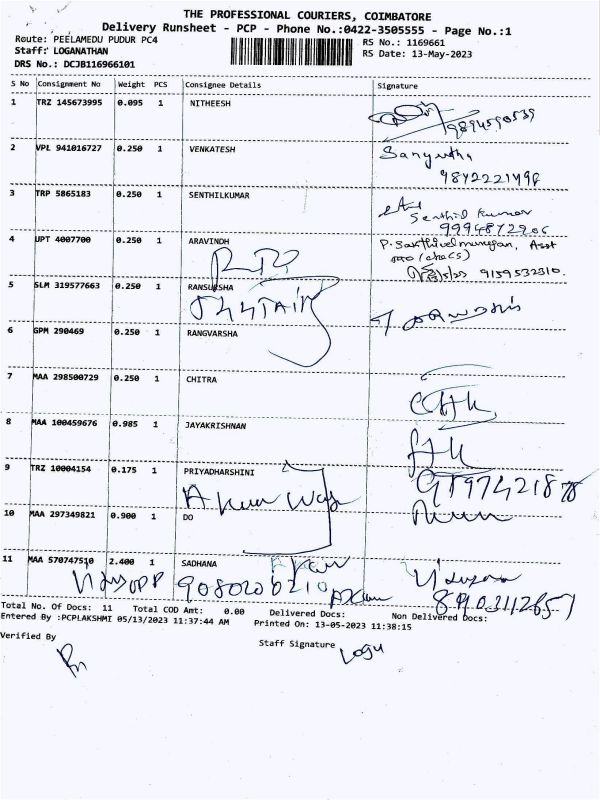 THE PROFESSIONAL COURIERS, COIMBATORE
Delivery Runsheet - PCP - Phone No.:0422-3505555 - Page No.:1
Route: PEELAMEDU PUDUR PC4
RS No.: 1169661
Staff: LOGANATHAN
RS Date: 13-May-2023
DRS No.: DCJB116966101
S No Consignment No Weight PCS Consignee Details Signature
1 TRZ 145673995 0.095 1 NITHEESH
9894590539
2 VPL 941016727 0.250 1 VENKATESH
Sanyutha
3 TRP 5865183 0.250 1 SENTHILKUMAR
Senthil Kumar
4 UPT 4007700 0.250 1 ARAVINDH
P. Sakthivelmurugan, Asst
9159532310.
5 SLM 319577663 0.250 1 RANSURSHA
6 GPM 290469 0.250 1 RANGVARSHA
7 MAA 298500729 0.250 1 CHITRA
8 MAA 100459676 0.985 1 JAYAKRISHNAN
9 TRZ 10004154 0.175 1 PRIYADHARSHINI
10 MAA 297349821 0.900 1 DO
11 MAA 570747510 2.400 1 SADHANA
9080200210
8903112657
Total No. Of Docs: 11 Total COD Amt: 0.00 Delivered Docs: Non Delivered Docs:
Entered By :PCPLAKSHMI 05/13/2023 11:37:44 AM Printed On: 13-05-2023 11:38:15
Verified By
Staff Signature Logu